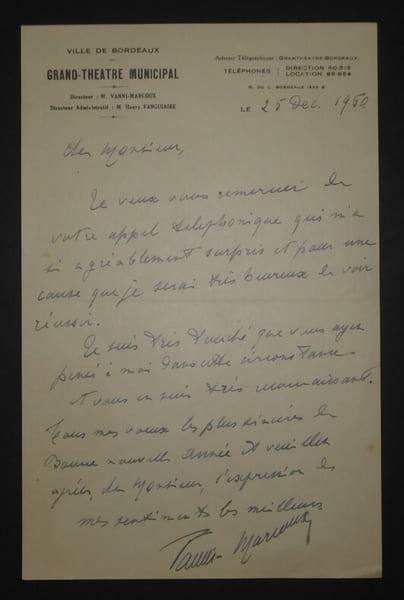 VILLE DE BORDEAUX
GRAND-THEATRE MUNICIPAL
Directeur : M. VANNI-MARCOUX
Directeur Administratif : M Henry FANGUIAIRE
Adresse Télégraphique : GRANTHÉATRE-BORDEAUX
TÉLÉPHONES DIRECTION 80.515
LOCATION
R. DU C. BORDEAUX
LE 25 Dec. 1950
Cher Monsieur,
Je veux vous remercier de
votre appel téléphonique qui m'a
si agréablement surpris et pour une
cause que je serai très heureux de voir
réussir.
Je suis très touché que vous ayez
pensé à moi dans cette circonstance
et vous en suis très reconnaissant.
Tous mes vœux les plus sincères de
Bonne nouvelle Année et veuillez
agréer, cher Monsieur, l'expression de
mes sentiments les meilleurs
Vanni-Marcoux